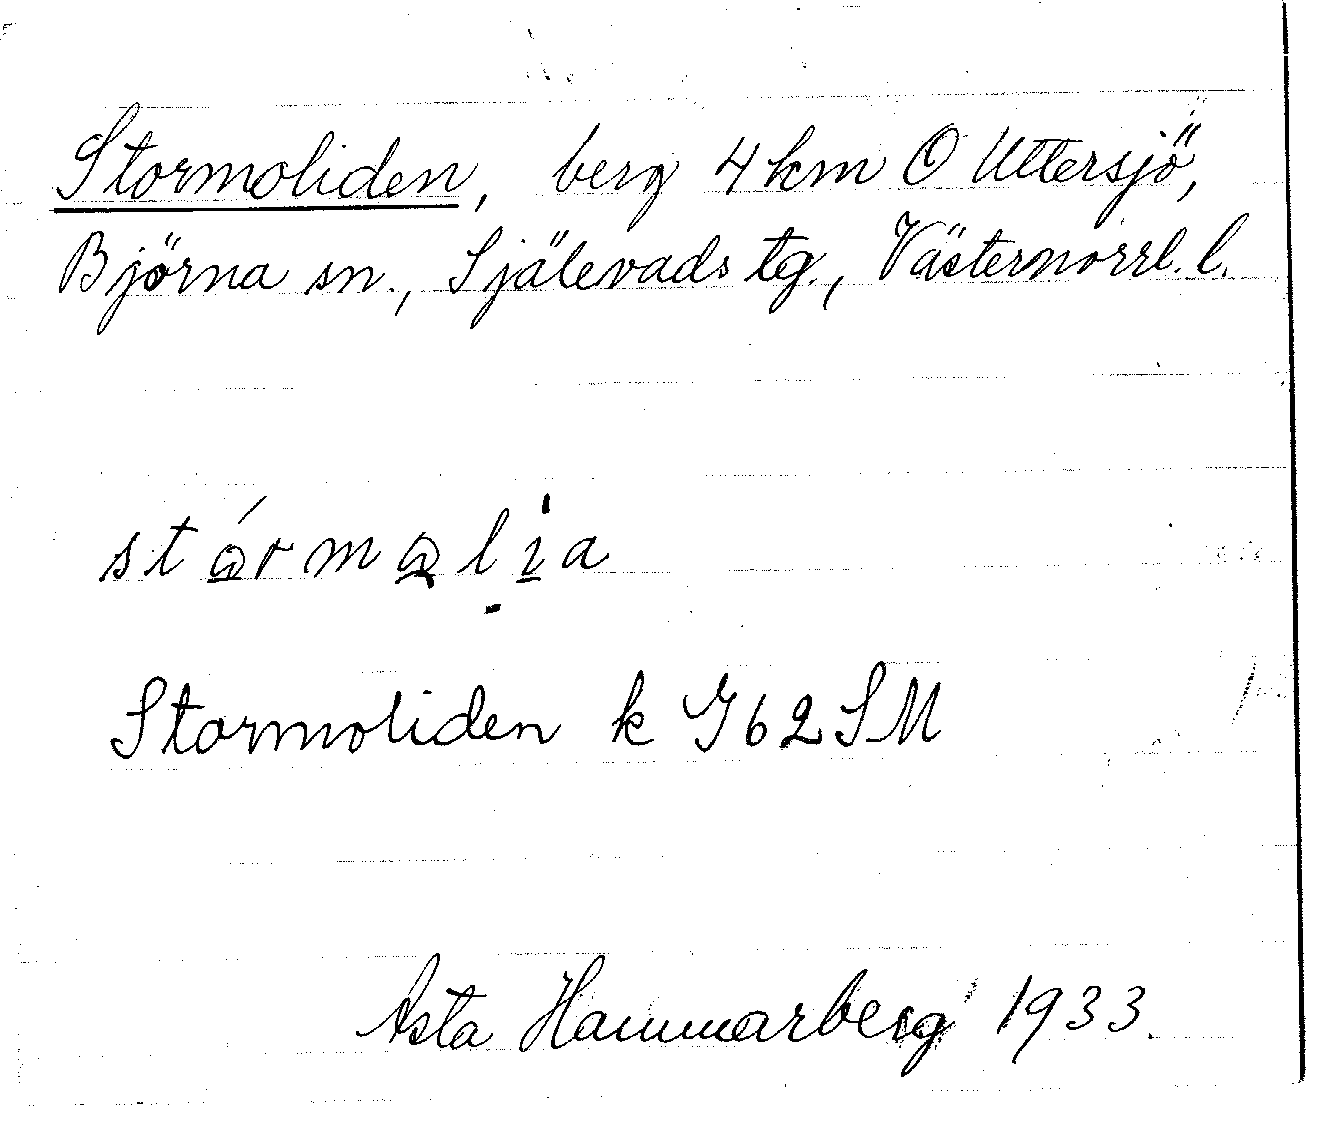 Stormoliden, berg 4 km O Uttersjö,
Björna sn., Själevads tg., Västernorrl. l.
stórmalia
Stormoliden k G62SM
Asta Hammarberg 1933.